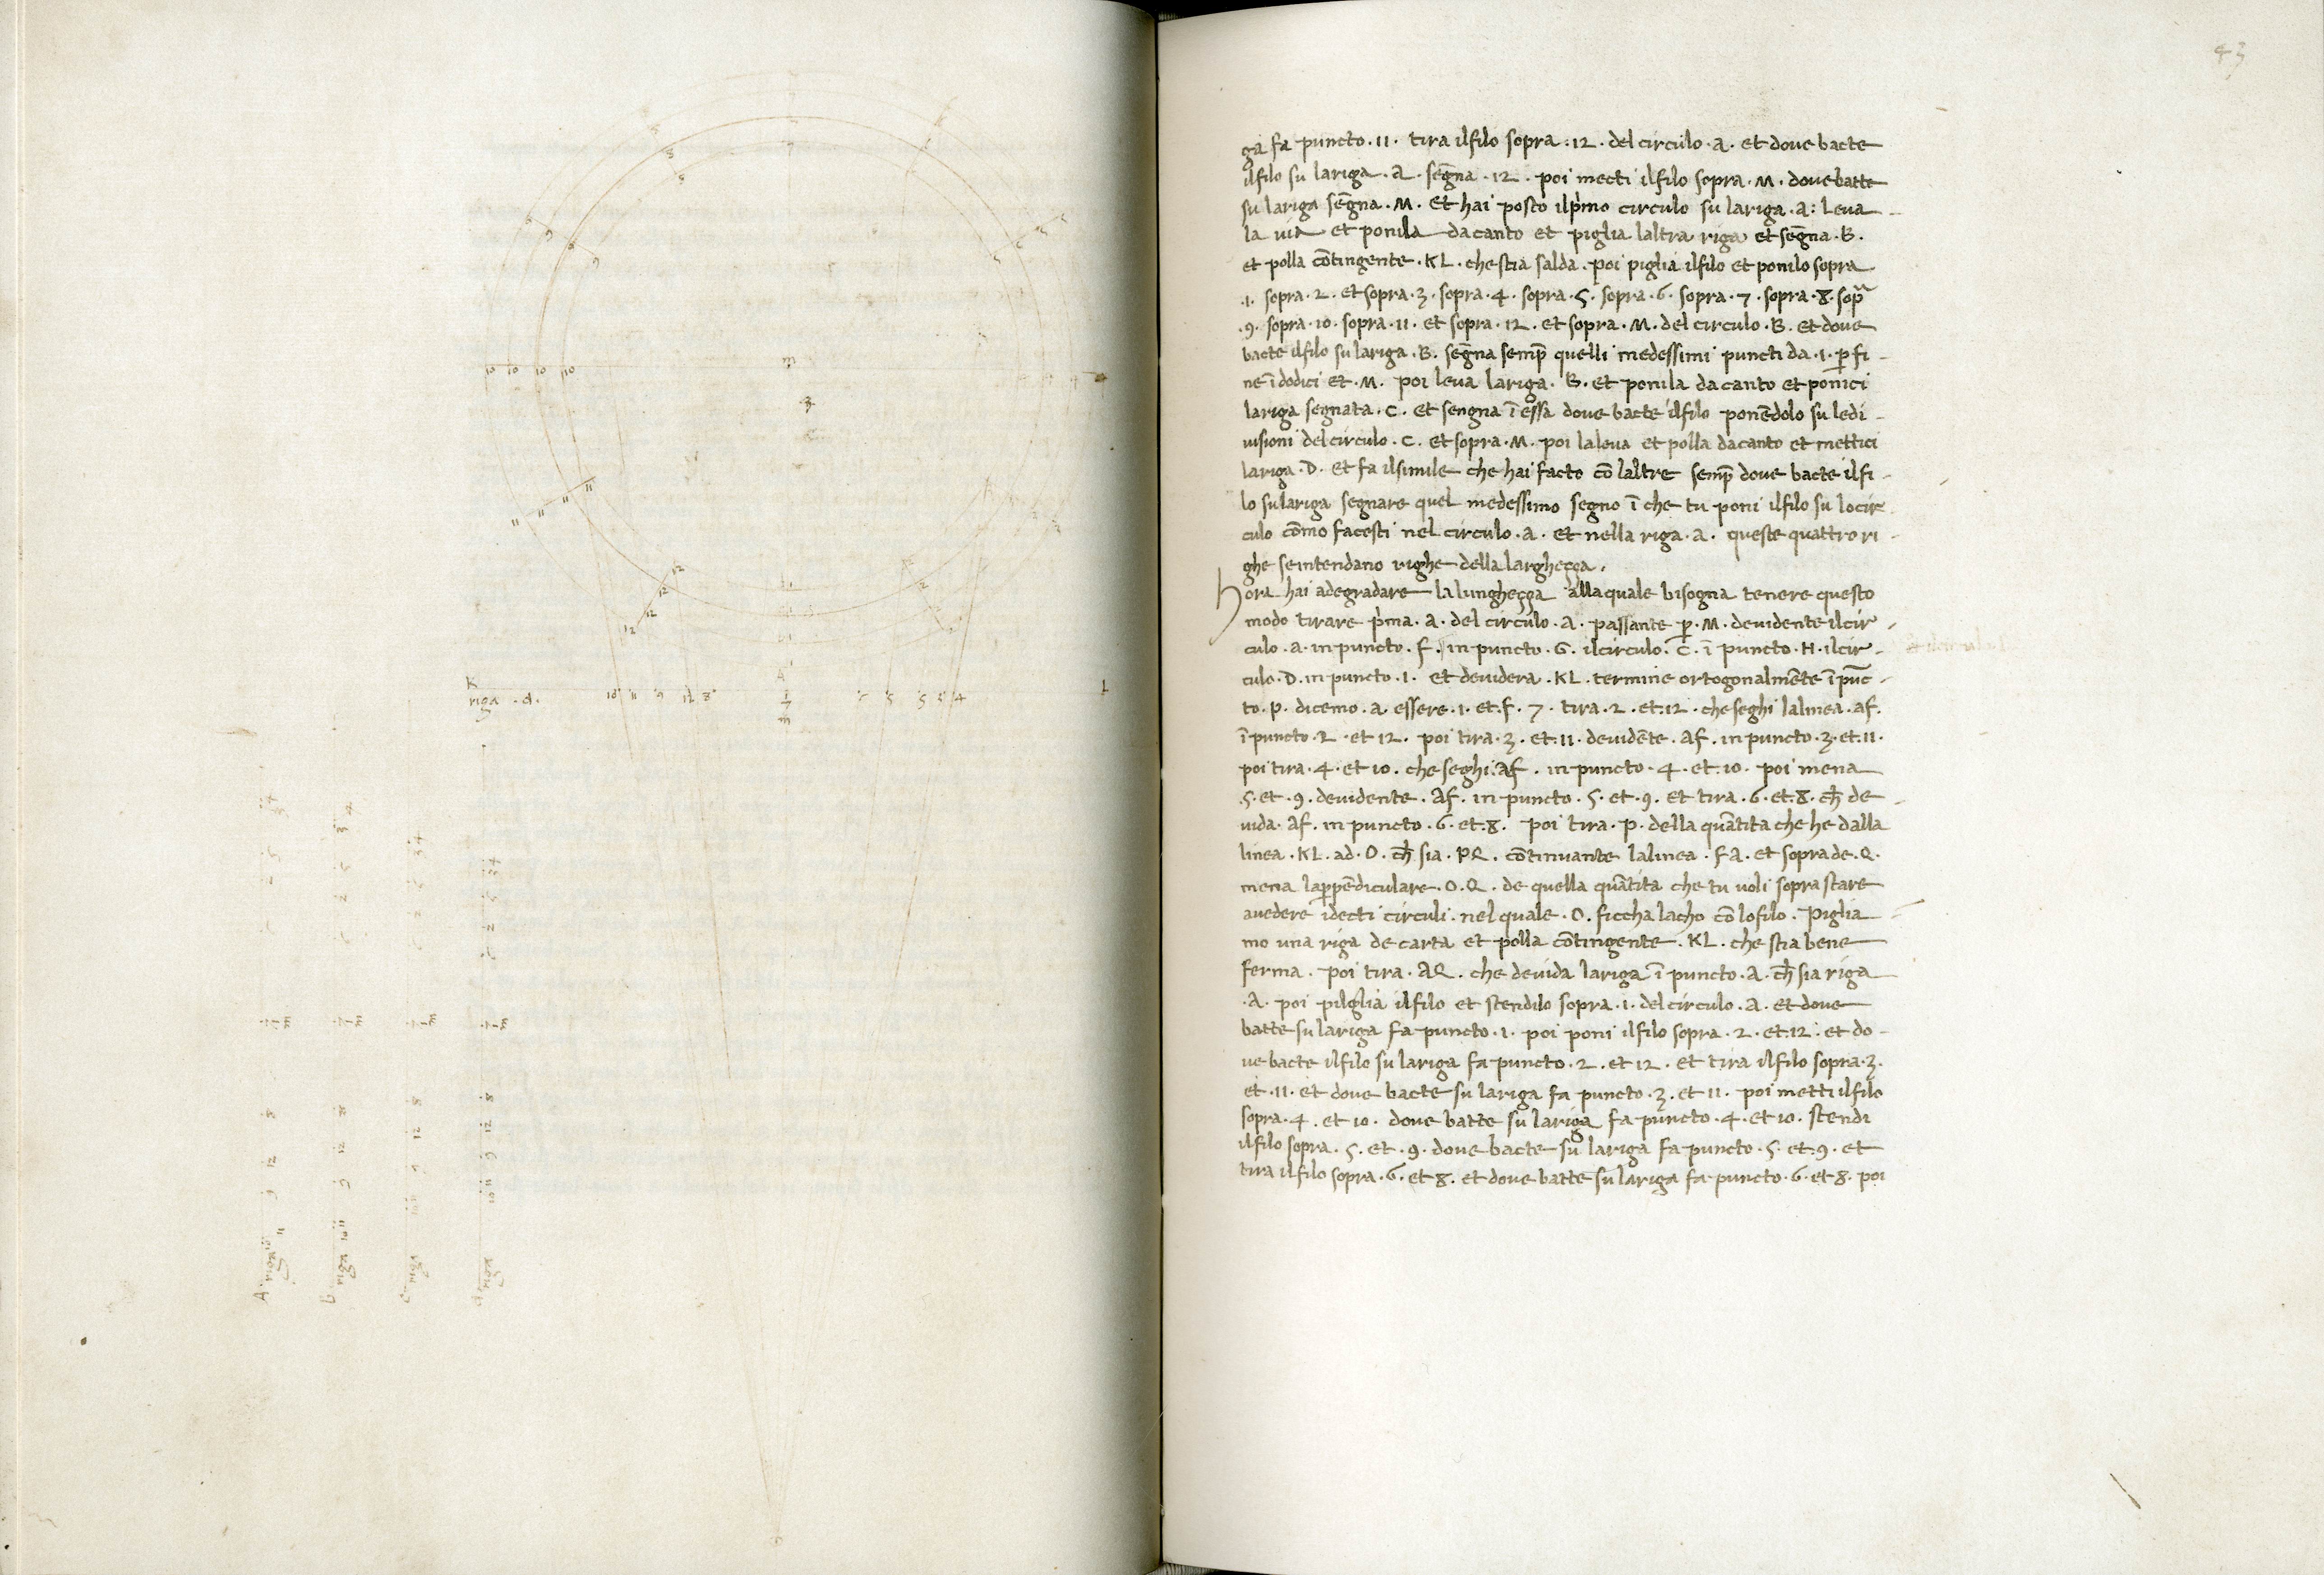 8
8
8
9
9
9
9
10 10 10 10
m
11 11 11 11
12
12
12
12
K
riga . d.
10 11 9 12 8
A
1
7
m
5 5 4
L
A riga
riga
riga
riga
43
ga fa puncto . 11 . tira ilfilo sopra . 12 . del circulo . a . et doue bacte
ilfilo su lariga . a . segna . 12 . poi mecti ilfilo sopra . M . doue batte
su lariga segna . M . et hai posto ilpͥmo circulo su lariga . a : Leua
la uia et ponila dacanto et piglia laltra riga et segna . B .
et polla cōtingente . KL . che stia salda . poi piglia ilfilo et ponilo sopra
.1. sopra . 2 . et sopra . 3 . sopra . 4 . sopra . 5 . sopra . 6 . sopra . 7 . sopra . 8 . sopᵃ
.9. sopra . 10 . sopra . 11 . et sopra . 12 . et sopra . M . del circulo . B . et doue
bacte ilfilo su lariga . B . segna semp̄ quelli medessimi puncti da . 1 . ꝑ fi-
ne ī dodici et . M . poi leua lariga . B . et ponila dacanto et ponici
lariga segnata . C . et sengna ī essa doue bacte ilfilo ponēdolo su ledi-
uisioni delcirculo . C . et sopra . M . poi laleua et polla dacanto et mettici
lariga . D . et fa ilsimile che hai facto cō laltre semp̄ doue bacte ilfi-
lo su lariga segnare quel medessimo segno ī che tu poni ilfilo su locir
culo cōmo facesti nel circulo . a . et nella riga . a . queste quattro ri-
ghe se intendano righe della largheçça .
Hora hai adegradare la lungheçça alla quale bisogna tenere questo
modo tirare pͥma . a . del circulo . a . passante ꝑ . M . deuidente ilcir-
culo . a . in puncto . f . in puncto . G . ilcirculo . C . ī puncto . H . ilcir-
culo . D . in puncto . I . et deuidera . KL . termine ortogonalmēte ī pūc-
to . p . dicemo . a . essere . 1 . et . f . 7 . tira . 2 . et . 12 . che seghi lalinea . af .
ī puncto . 2 . et 12 . poi tira . 3 . et . 11 . deuidēte . Af . in puncto . 3 . et . 11 .
poi tira . 4 . et 10 . che seghi . Af . in puncto . 4 . et . 10 . poi mena
.5. et . 9 . deuidente . Af . in puncto . 5 . et . 9 . et tira . 6 . et . 8 . ch̄ de-
uida . Af . in puncto . 6 . et . 8 . poi tira . p . della quātita che he dalla
linea . KL . ad . O . ch̄ sia . PQ . cōtinuante lalinea . fA . et sopra de . Q .
mena lapꝑēdiculare . O.Q . de quella quātita che tu uoli soprastare
auedere idecti circuli . nel quale . O . ficcha lacho cō lofilo . Piglia-
mo una riga de carta et polla cōtingente . KL . che stia bene
ferma . poi tira . AQ . che deuida lariga ī puncto . A . ch̄ sia riga
.A. poi pilglia ilfilo et stendilo sopra . 1 . del circulo . A . et doue
batte su lariga fa puncto . 1 . poi poni ilfilo sopra . 2 . et . 12 . et do-
ue bacte ilfilo su lariga fa puncto . 2 . et 12 . et tira ilfilo sopra . 3 .
et . 11 . et doue bacte su lariga fa puncto . 3 . et 11 . poi metti ilfilo
sopra . 4 . et 10 . doue batte su lariga fa puncto . 4 . et 10 . stendi
ilfilo sopra . 5 . et . 9 . doue bacte su lariga fa puncto . 5 . et . 9 . et
tira ilfilo sopra . 6 . et 8 . et doue batte su lariga fa puncto . 6 . et 8 . poi